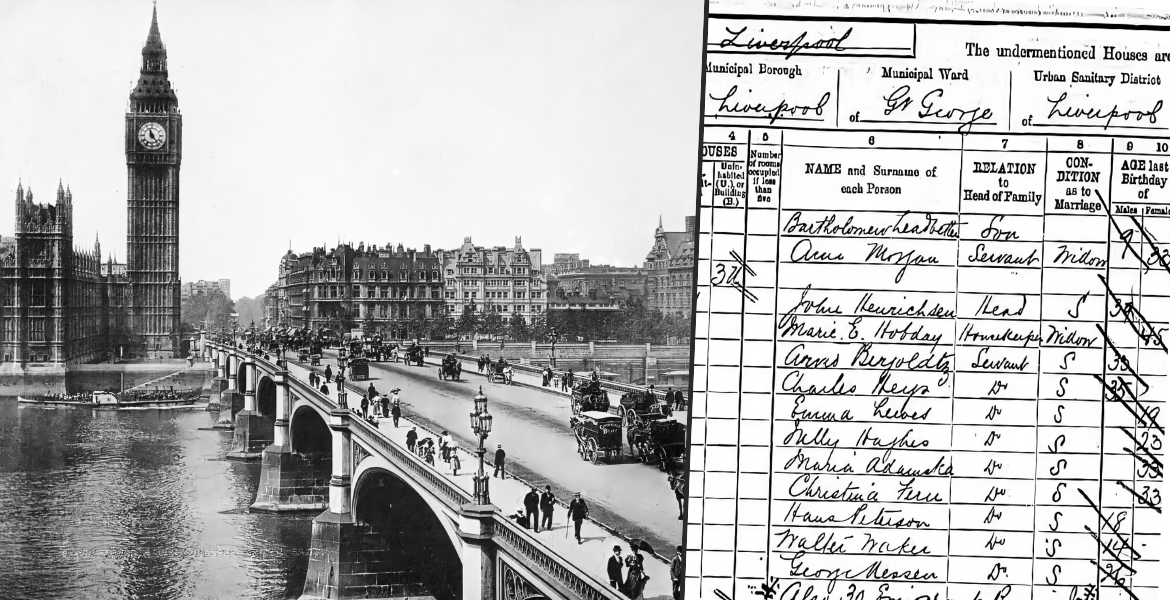 Liverpool
The undermentioned Houses are
Municipal Borough Municipal Ward Urban Sanitary District
Liverpool of St George of Liverpool
4 5 6 7 8 9 10
OUSES Number of rooms occupied if less than five NAME and Surname of each Person RELATION to Head of Family CON-DITION as to Marriage AGE last Birthday of
Unin-habited (U.), or Building (B.) Males Females
Bartholomew Leadbetter Son 9
Anne Morgan Servant Widow 33
John Henrichsen Head S
Marie E. Hobday Housekeeper Widow 45
Servant S 33
Charles Do S 35
Emma Lewes Do S 19
Nelly Hughes Do S 23
Maria Adamska Do S 33
Christina Fern Do S 23
Hans Peterson Do S 18
Walter Waker Do S 14
George Messen Do S 26